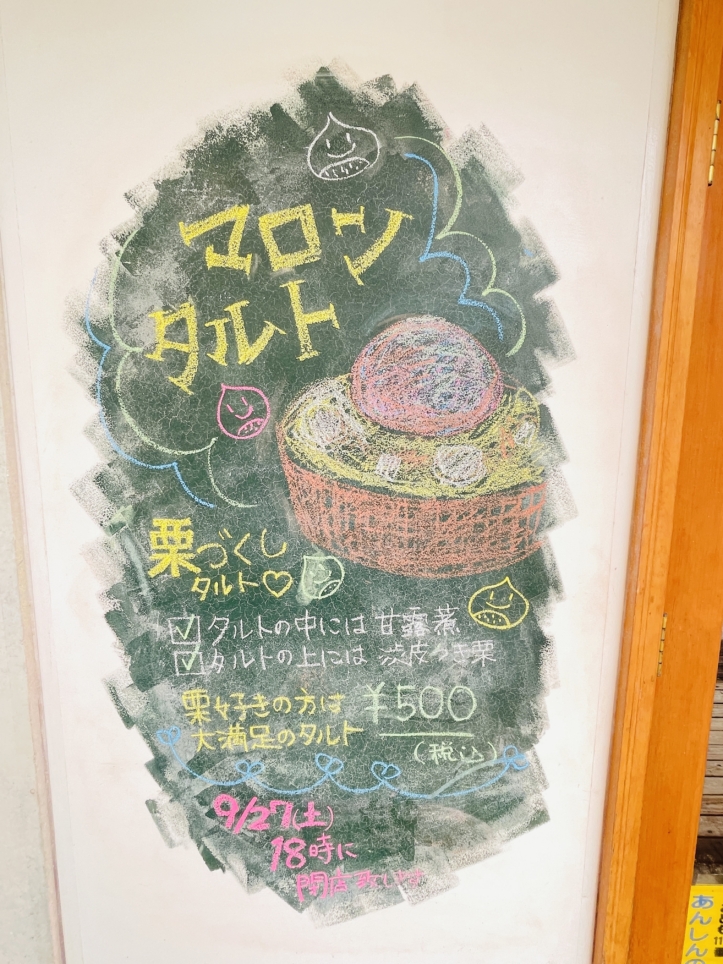 マロン
タルト
栗づくし
タルト♡
☑タルトの中には 甘露煮
☑タルトの上には 渋皮つき栗
栗好きの方は
大満足のタルト
¥500
(税込)
9/27(土)
18時に
閉店致します
あんしんの